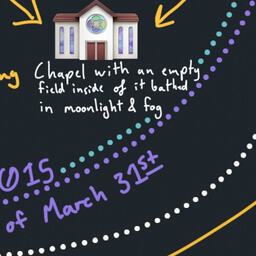 ng Chapel with an empty
field inside of it bathed
in moonlight & fog
015
of March 31st